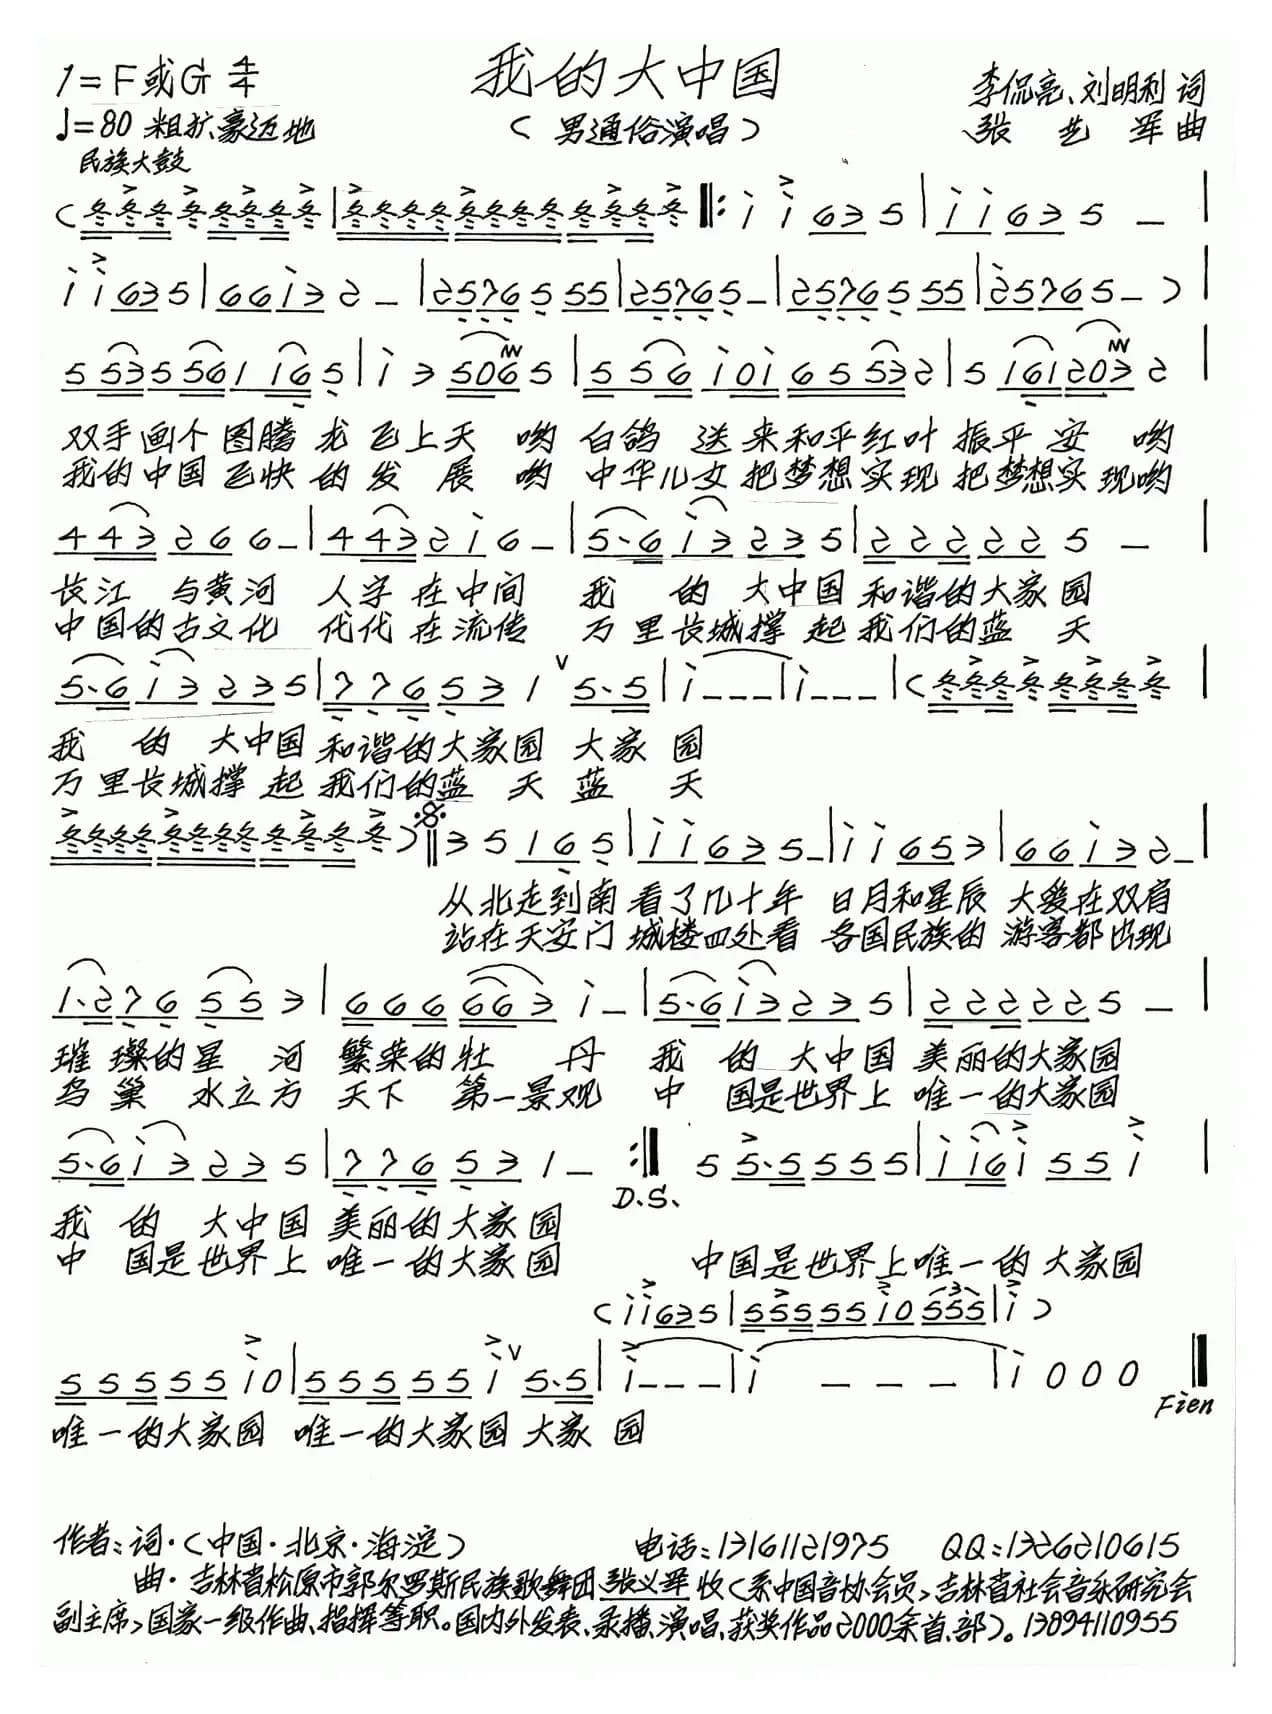 我的大中国
1=F或G 4/4
♩=80 粗犷豪迈地
(男通俗演唱)
李侃亮、刘明利 词
张艺军 曲
民族大鼓
(冬冬冬冬冬冬冬冬|冬冬冬冬冬冬冬冬冬冬冬冬‖:i i 635|i i 635-|
i i 635|66i32-|2576555|25765-|2576555|25765-)|
5535561i65|i35065|556i0i65532|5i612032|
双手画个图腾龙飞上天哟 白鸽送来和平红叶振平安哟
我的中国飞快的发展哟 中华儿女把梦想实现 把梦想实现哟
443266-|4432i6-|5·6i3235|2222225-|
长江与黄河 人字在中间 我的大中国 和谐的大家园
中国的古文化 代代在流传 万里长城撑起我们的蓝天
5·6i3235|776531∨5·5|i---|i---|(冬冬冬冬冬冬冬冬
我的大中国 和谐的大家园 大家园
万里长城撑起我们的蓝天 蓝天
冬冬冬冬冬冬冬冬冬冬冬冬)‖35165|i i 635-|i i 653|66i32-|
从北走到南 看了几十年 日月和星辰 大爱在双肩
站在天安门 城楼四处看 各国民族的 游客都出现
1·276553|666663i-|5·6i3235|222225-|
璀璨的星河 繁荣的牡丹 我的大中国 美丽的大家园
鸟巢水立方 天下第一景观 中国是世界上 唯一的大家园
5·6i3235|776531-:‖55·55555|i i6i55i|
D.S.
我的大中国 美丽的大家园
中国是世界上 唯一的大家园 中国是世界上唯一的大家园
(i i635|55555 5i0555|i)
55555i0|55555i∨5·5|i---|i---|i000‖
Fien
唯一的大家园 唯一的大家园 大家园
作者:词·(中国·北京·海淀) 电话:13161121975 QQ:1326210615
曲·吉林省松原市郭尔罗斯民族歌舞团张义军收(系中国音协会员、吉林省社会音乐研究会
副主席、国家一级作曲、指挥等职。国内外发表、录播、演唱、获奖作品2000余首、部)。13894110955